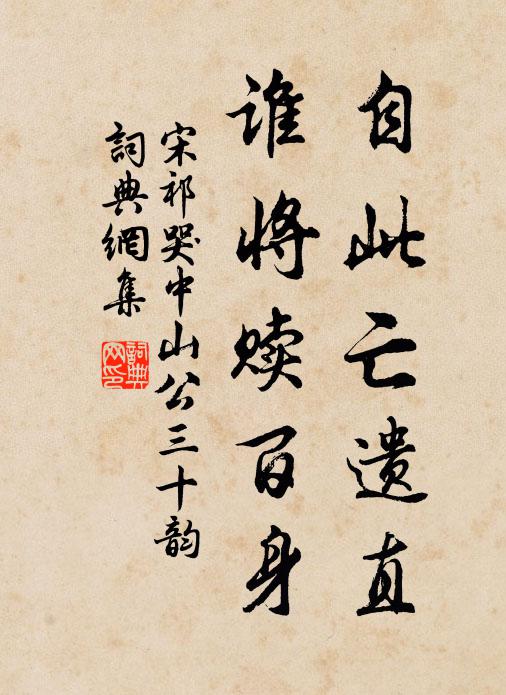 自此亡遗直
谁将赎百身
宋祁哭中山公三十韵
詞典網集
詞典网印